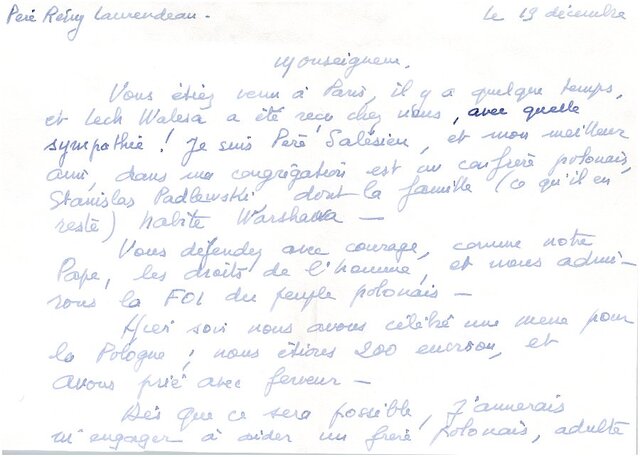 Père Rémy Laurendeau -
le 19 décembre
Monseigneur,
Vous étiez venu à Paris, il y a quelque temps,
et Lech Walesa a été reçu chez nous, avec quelle
sympathie! Je suis Père Salésien, et mon meilleur
ami, dans ma congrégation est un confrère polonais,
Stanislas Padlewski dont la famille (ce qu'il en
reste) habite Warshawa —
Vous défendez avec courage, comme notre
Pape, les droits de l'homme, et nous admi-
rons la FOI du peuple polonais —
Hier soir nous avons célébré une messe pour
la Pologne ; nous étions 200 environ, et
avons prié avec ferveur —
Dès que ce sera possible, j'aimerais
m'engager à aider un frère polonais, adulte